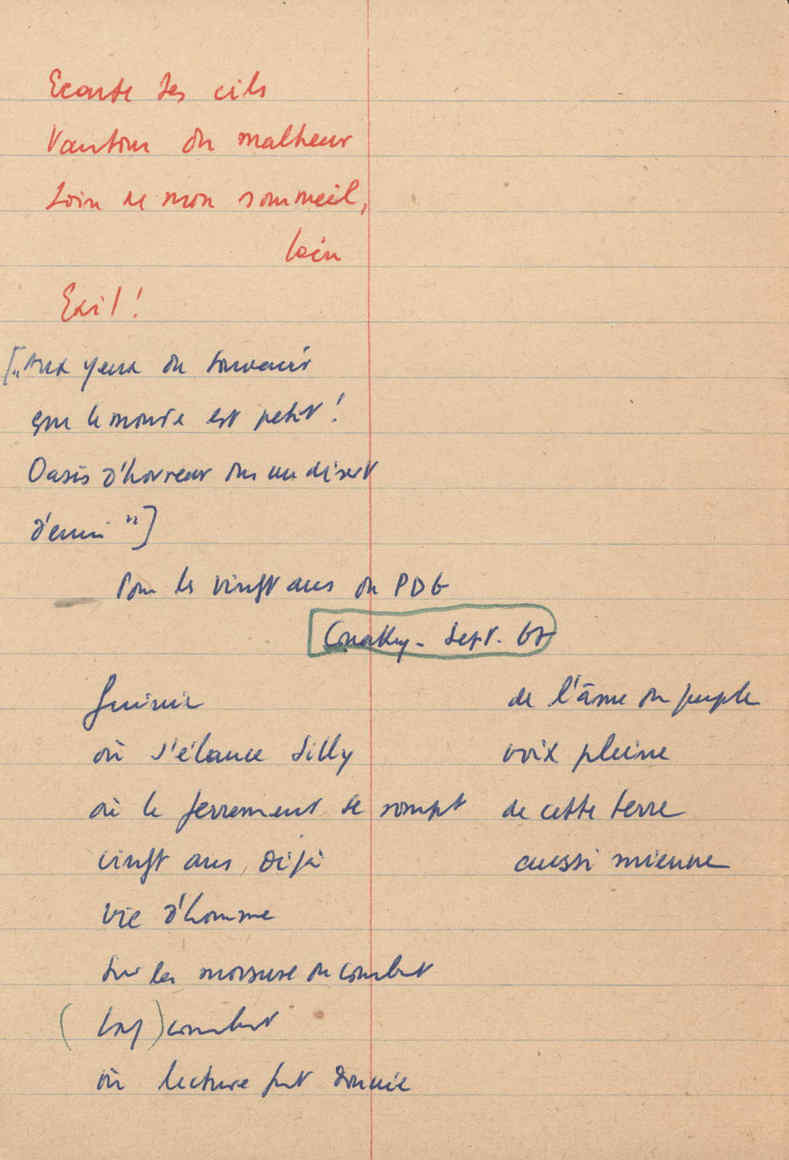 Ecarte tes cils
Vautour du malheur
Loin de mon sommeil,
loin
Exil!
["Aux yeux du souvenir
que le monde est petit!
Oasis d'horreur dans un désert
d'ennui"]
Pour les vingt ans du PDG
Conakry - Sept. 67
Guinée
où s'élance Silly
où le ferrement se rompt
vingt ans, déjà
vie d'homme
sur les morsure du combat
( ) combat
où lecture fut donnée
de l'âme du peuple
voix pleine
de cette terre
aussi mienne